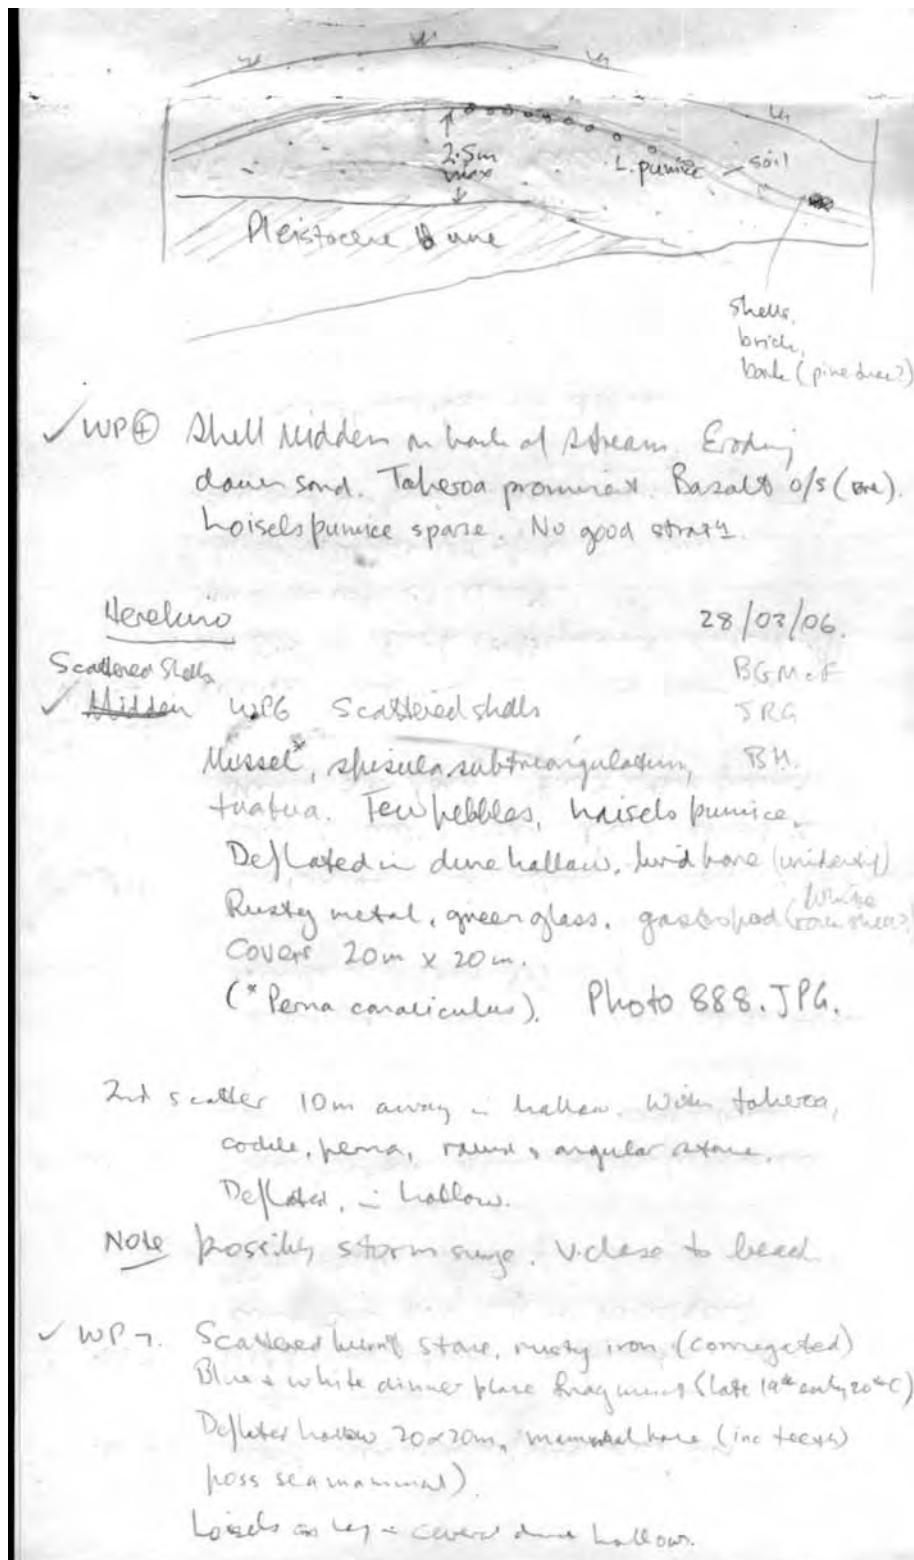 2.5m
max
L. pumice
soil
Pleistocene Dune
shells,
brick,
bark (pine tree?)
WP④ Shell Midden on bank of stream. Eroding
down sand. Toheroa prominent. Basalt o/s
Loisels pumice sparse. No good strat
Herekino 28/03/06.
Scattered Shells
BGMcF
Midden WP6 Scattered shells
JRG
Mussel*, spisula subtriangulatum,
BH.
tuatua. Few pebbles, loisels pumice.
Deflated in dune hollow, bird bone
Rusty metal, green glass. gastropod (White
Covers 20m x 20m.
(* Perna canaliculus). Photo 888.JPG.
2nd scatter 10m away in hollow. With toheroa,
cockle, perna, round & angular stone.
Deflated, in hollow.
Note possibly storm surge. V. close to beach
WP 7. Scattered burnt stone, rusty iron (corrugated)
Blue & white dinner plate fragments (late 19th early 20th C)
Deflated hollow 20x20m, mammal bone (inc teeth)
poss sea mammal).
Loisels as lag in several dune hollows.